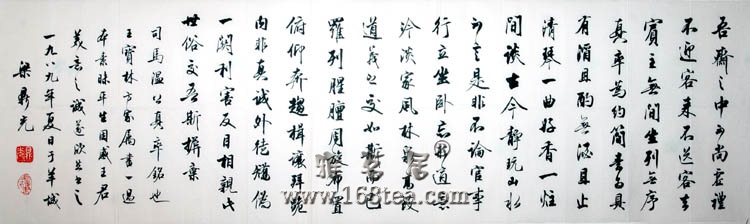 吾齋之中不尚虛禮
不迎客來不送客去
賓主無間坐列無序
真率為約簡素為具
有酒且酌無酒且止
清琴一曲好香一炷
閒談古今靜玩山水
不言是非不論官事
行立坐卧忘形適意
冷淡家風林泉高致
道義之交如斯而已
羅列腥膻周旋布置
俯仰奔趨揖讓拜跪
內非真誠外徒矯偽
一關利害反目相視此
世俗交吾斯擯棄
司馬溫公真率銘也
王寶林方家屬書一過
本素昧平生因感王君
美意之誠遂欣然書之
一九八九年夏日于羊城
梁鼎光
雅茗居
www.168tea.com